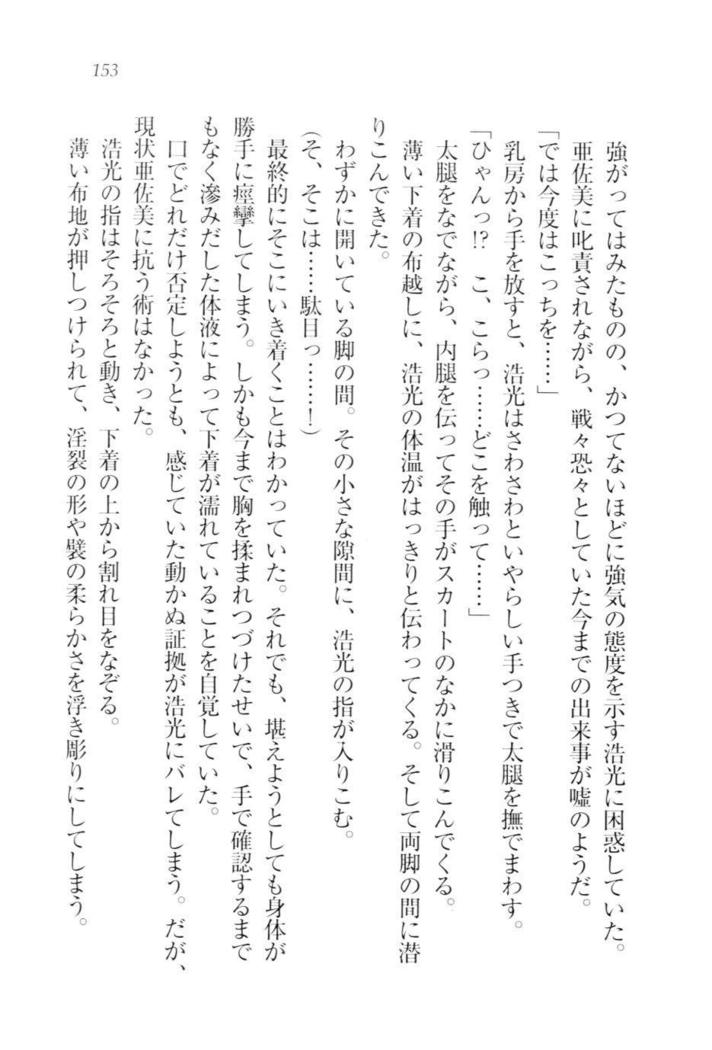 153
強がってはみたものの、かつてないほどに強気の態度を示す浩光に困惑していた。
亜佐美に叱責されながら、戦々恐々としていた今までの出来事が嘘のようだ。
「では今度はこっちを……」
乳房から手を放すと、浩光はさわさわといやらしい手つきで太腿を撫でまわす。
「ひゃんっ!?　こ、こらっ……どこを触って……」
太腿をなでながら、内腿を伝ってその手がスカートのなかに滑りこんでくる。
薄い下着の布越しに、浩光の体温がはっきりと伝わってくる。そして両脚の間に潜
りこんできた。
わずかに開いている脚の間。その小さな隙間に、浩光の指が入りこむ。
（そ、そこは……駄目っ……！）
最終的にそこにいき着くことはわかっていた。それでも、堪えようとしても身体が
勝手に痙攣してしまう。しかも今まで胸を揉まれつづけたせいで、手で確認するまで
もなく滲みだした体液によって下着が濡れていることを自覚していた。
口でどれだけ否定しようとも、感じていた動かぬ証拠が浩光にバレてしまう。だが、
現状亜佐美に抗う術はなかった。
浩光の指はそろそろと動き、下着の上から割れ目をなぞる。
薄い布地が押しつけられて、淫裂の形や襞の柔らかさを浮き彫りにしてしまう。